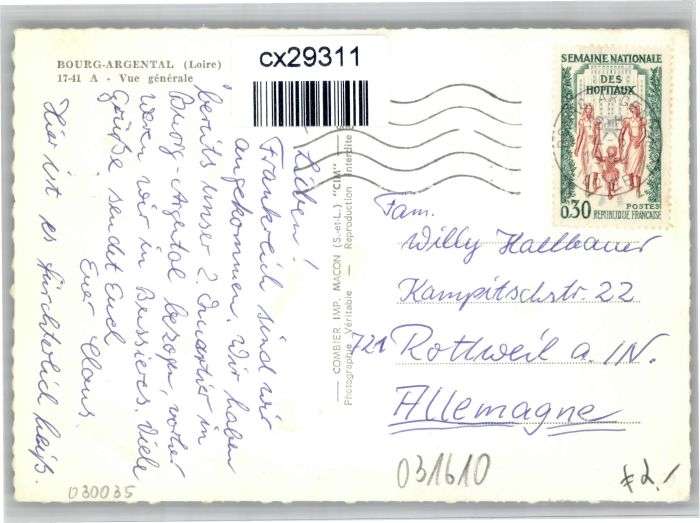 BOURG-ARGENTAL (Loire)
17-41 A - Vue générale
cx29311
Ihr Lieben!
Frankreich sind wir
angekommen. Wir haben
bereits unser 2. Quartier in
Bourg-Argental bezogen, vorher
waren wir in Bussieres. Viele
Grüße sendet Euch
Euer Claus.
Hier ist es fürchterlich heiß.
COMBIER IMP. MACON (S.-et-L.) "CIM"
Photographie Véritable - Reproduction Interdite
SEMAINE NATIONALE
DES
HOPITAUX
POSTES
0,30 REPUBLIQUE FRANÇAISE
Fam.
Willy Hallbauer
Kampitschstr. 22
721 Rottweil a. /N.
Allemagne
030035
031610